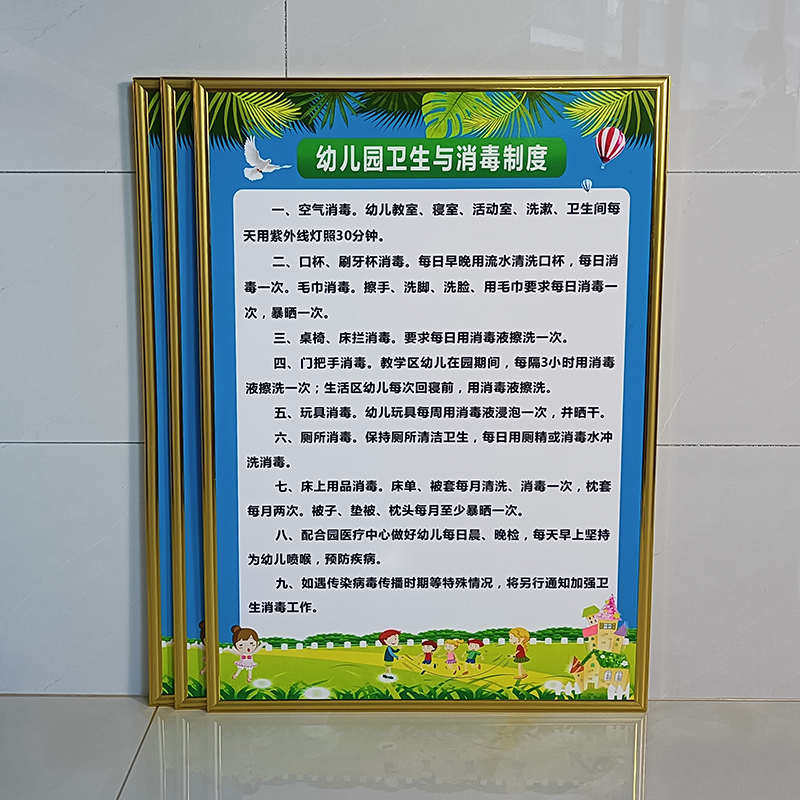 幼儿园卫生与消毒制度
一、空气消毒。幼儿教室、寝室、活动室、洗漱、卫生间每
天用紫外线灯照30分钟。
二、口杯、刷牙杯消毒。每日早晚用流水清洗口杯，每日消
毒一次。毛巾消毒。擦手、洗脚、洗脸、用毛巾要求每日消毒一
次，暴晒一次。
三、桌椅、床拦消毒。要求每日用消毒液擦洗一次。
四、门把手消毒。教学区幼儿在园期间，每隔3小时用消毒
液擦洗一次；生活区幼儿每次回寝前，用消毒液擦洗。
五、玩具消毒。幼儿玩具每周用消毒液浸泡一次，并晒干。
六、厕所消毒。保持厕所清洁卫生，每日用厕精或消毒水冲
洗消毒。
七、床上用品消毒。床单、被套每月清洗、消毒一次，枕套
每月两次。被子、垫被、枕头每月至少暴晒一次。
八、配合园医疗中心做好幼儿每日晨、晚检，每天早上坚持
为幼儿喷喉，预防疾病。
九、如遇传染病毒传播时期等特殊情况，将另行通知加强卫
生消毒工作。